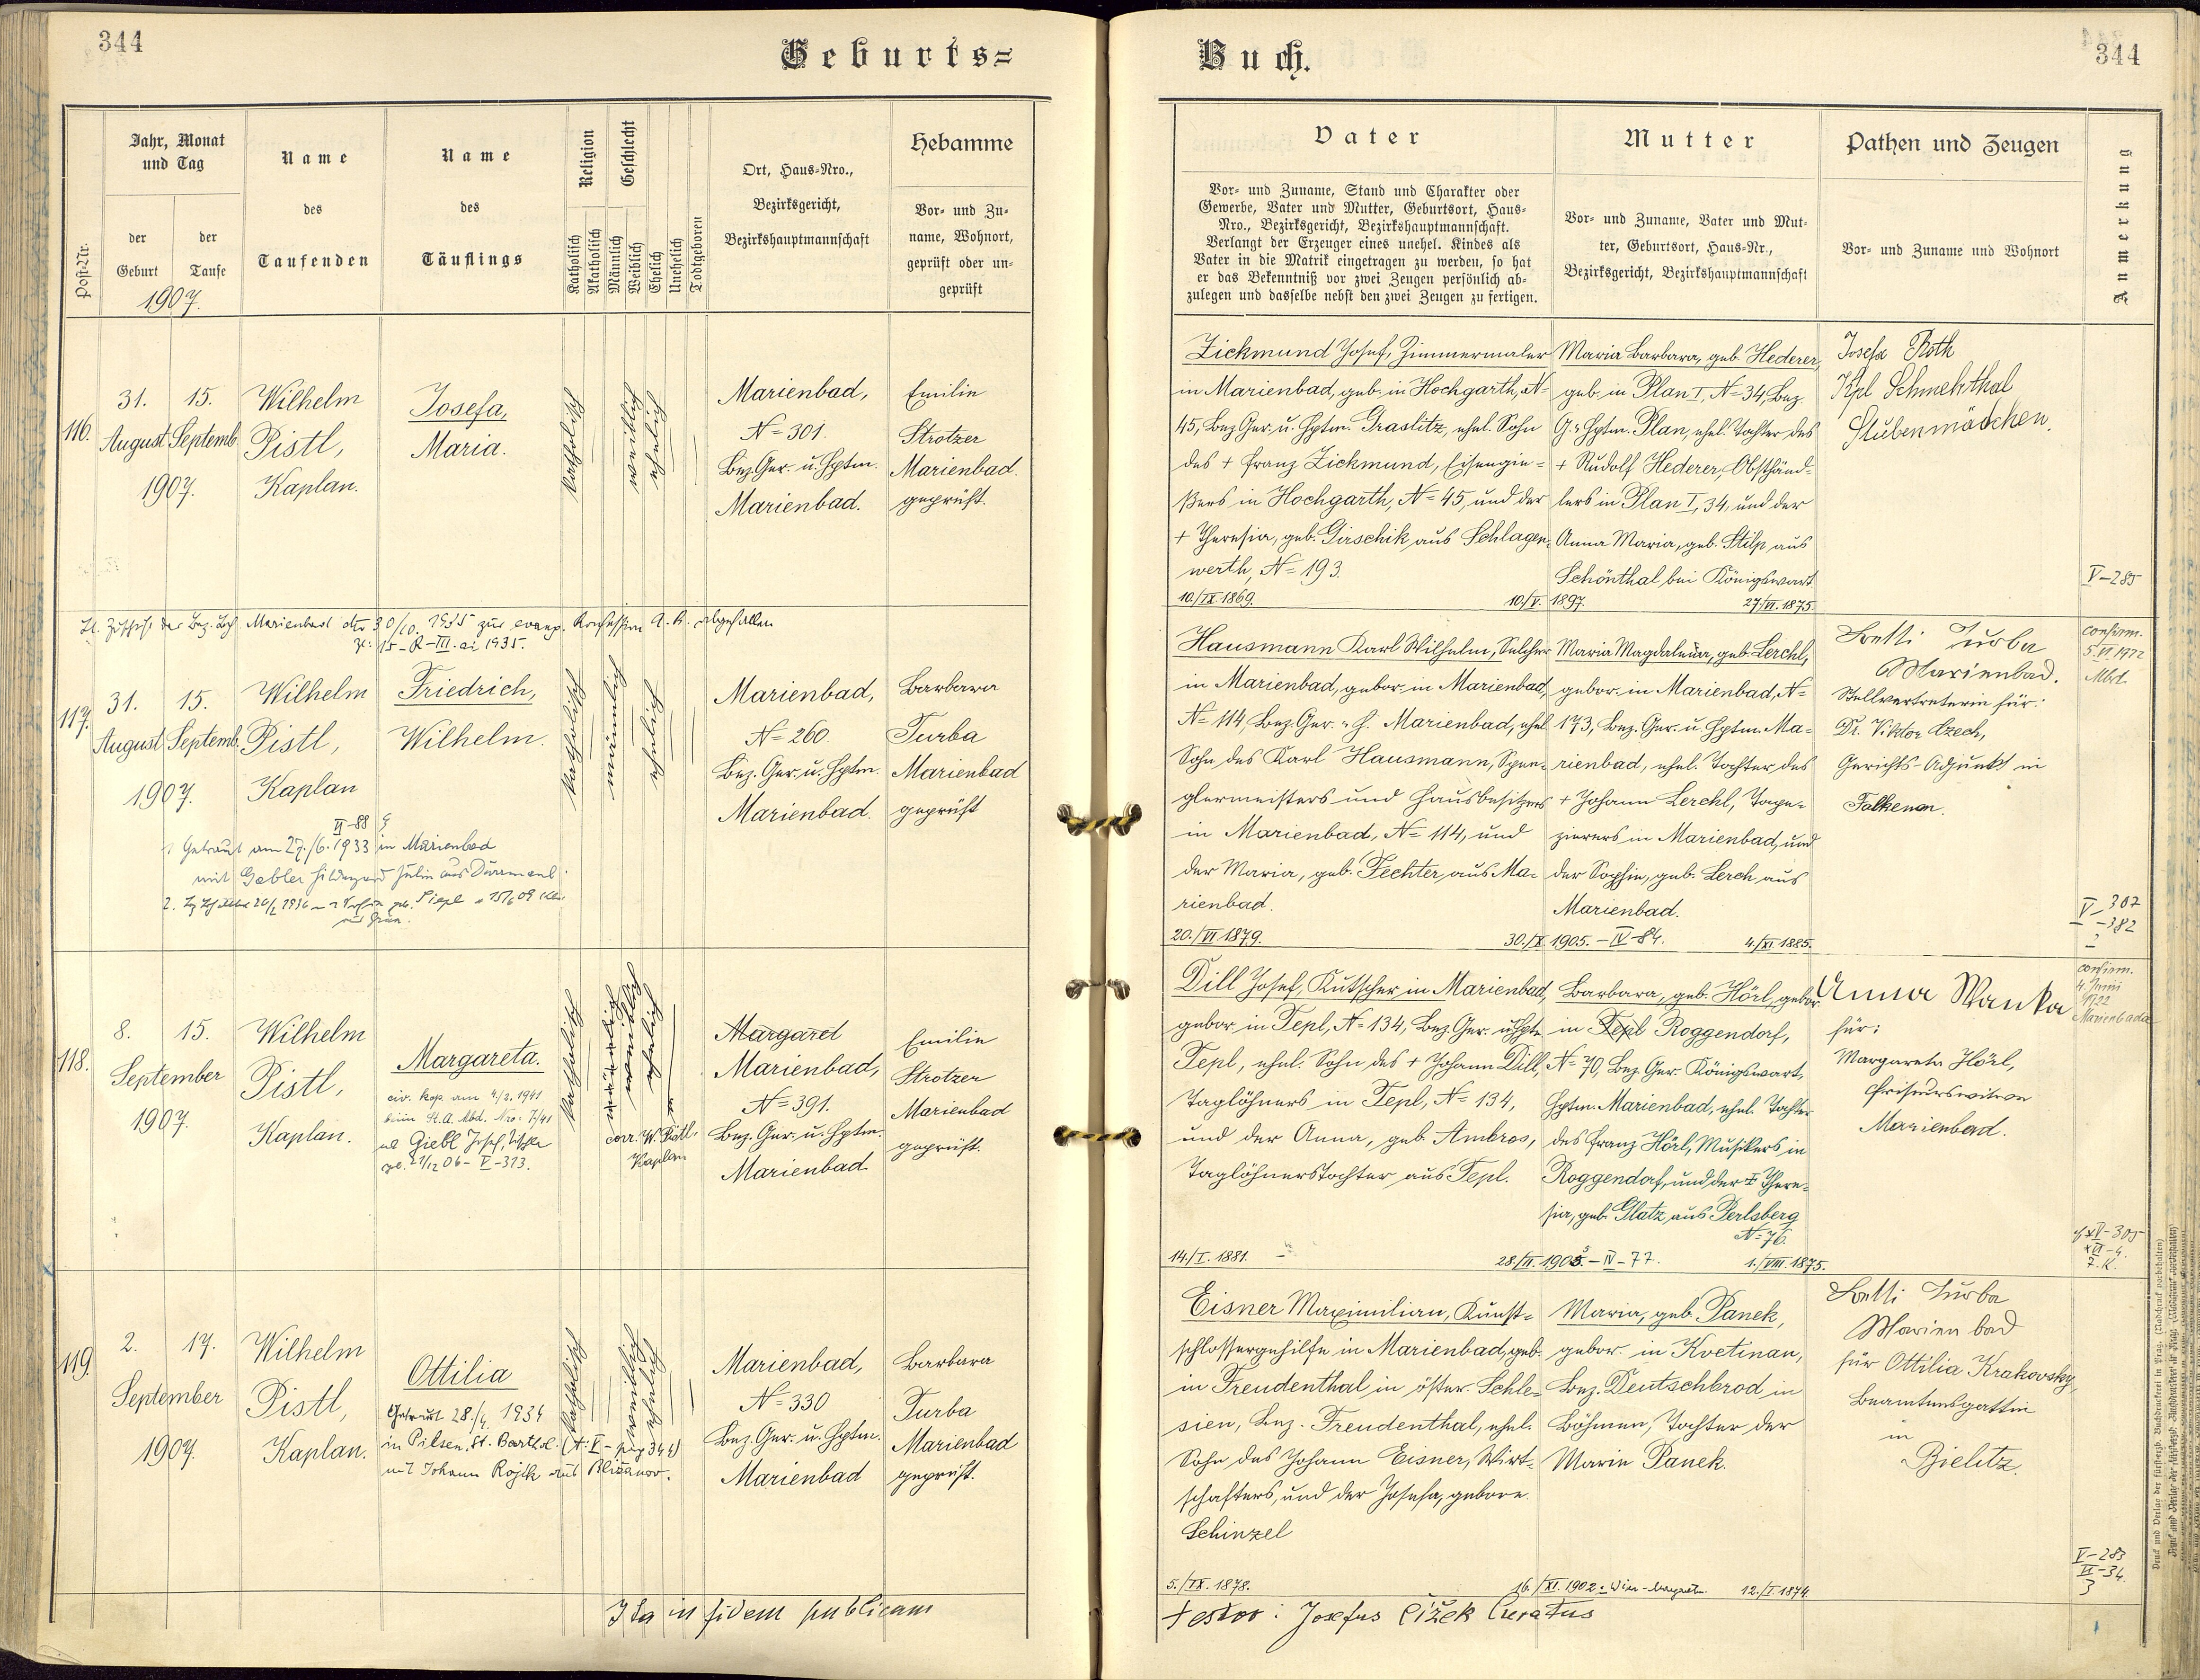 344
Geburts=
Jahr, Monat
und Tag
der
Geburt
der
Taufe
1907.
Post-Nr.
Name
des
Taufenden
Name
des
Täuflings
Religion
Katholisch
Akatholisch
Geschlecht
Männlich
Weiblich
Ehelich
Unehelich
Todtgeboren
Ort, Haus-Nro.,
Bezirksgericht,
Bezirkshauptmannschaft
Hebamme
Vor- und Zu-
name, Wohnort,
geprüft oder un-
geprüft
116.
31.
August
15.
Septemb.
1907.
Wilhelm
Pistl,
Kaplan.
Josefa,
Maria.
katholisch
weiblich
ehelich
Marienbad,
N= 301.
Bez. Ger. u. Hptm.
Marienbad.
Emilie
Strotzer
Marienbad.
geprüft.
Marienbad 30/10. 1935 zur evang. Konfession A. B. abgefallen
15-R-III. ai 1935.
117.
31.
August
15.
Septemb.
1907.
Wilhelm
Pistl,
Kaplan
Friedrich,
Wilhelm.
katholisch
männlich
ehelich
Marienbad,
N= 260
Bez. Ger. u. Hptm.
Marienbad.
Barbara
Turba
Marienbad
geprüft
VI-88
Getraut am 27./6. 1933 in Marienbad
mit Gabler Hildegard Julie aus Dürrmaul.
118.
8.
15.
September
1907.
Wilhelm
Pistl,
Kaplan.
Margareta.
civ. kop. am 4/2. 1941
beim St. A. Mbd. Nro: 7/41
Giebl Josef,
21/12 06- V-313.
katholisch
männlich
weiblich
ehelich
corr. W. Pistl,
Kaplan
Margaret
Marienbad,
N= 391.
Bez. Ger. u. Hptm.
Marienbad
Emilie
Strotzer
Marienbad
geprüft.
119.
2.
17.
September
1907.
Wilhelm
Pistl,
Kaplan.
Ottilia
Getraut 28./4. 1934
in Pilsen, St. Barthol. (A: V- pag 344)
mit Johann Rojik aus Blížanov.
katholisch
weiblich
ehelich
Marienbad,
N= 330
Bez. Ger. u. Hptm.
Marienbad
Barbara
Turba
Marienbad
geprüft.
Ita in fidem publicam
Buch.
344
Vater
Vor- und Zuname, Stand und Charakter oder
Gewerbe, Vater und Mutter, Geburtsort, Haus-
Nro., Bezirksgericht, Bezirkshauptmannschaft.
Verlangt der Erzeuger eines unehel. Kindes als
Vater in die Matrik eingetragen zu werden, so hat
er das Bekenntniß vor zwei Zeugen persönlich ab-
zulegen und dasselbe nebst den zwei Zeugen zu fertigen.
Mutter
Vor- und Zuname, Vater und Mut-
ter, Geburtsort, Haus-Nr.,
Bezirksgericht, Bezirkshauptmannschaft
Pathen und Zeugen
Vor- und Zuname und Wohnort
Anmerkung
Zickmund Josef, Zimmermaler
in Marienbad, geb. in Hochgarth, N=
45, Bez. Ger. u. Hptm. Graslitz, ehel. Sohn
des + Franz Zickmund, Eisengie=
ßers in Hochgarth, N= 45, und der
+ Theresia, geb. Girschik aus Schlagen=
werth, N= 193.
10./IX. 1869.
10./V. 1897.
Maria Barbara, geb. Hederer,
geb. in Plan I, N= 34, Bez.
G. u. Hptm. Plan, ehel. Tochter des
+ Rudolf Hederer, Obsthänd=
lers in Plan I, 34, und der
Anna Maria, geb. Stilp aus
Schönthal bei Königswart
27./VI. 1875.
Josefa Roth
Schmehrthal
Stubenmädchen.
V-285
Hausmann Karl Wilhelm, Selcher
in Marienbad, gebor. in Marienbad,
N= 114, Bez. Ger. u. H. Marienbad, ehel.
Sohn des Karl Hausmann, Spen=
glermeisters und Hausbesitzers
in Marienbad, N= 114, und
der Maria, geb. Fechter aus Ma=
rienbad.
20./VI. 1879.
30./X. 1905. - IV-84.
Maria Magdalena, geb. Lerchl,
gebor. in Marienbad, N=
173, Bez. Ger. u. Hptm. Ma=
rienbad, ehel. Tochter des
+ Johann Lerchl, Tape=
zierers in Marienbad, und
der Sophie, geb. Lerch aus
Marienbad.
4./XI. 1885.
Betti Turba
Marienbad.
Stellvertreterin für:
Dr. Viktor Czech,
Gerichts-Adjunkt in
Falkenau.
confirm.
5. VI 1922
Mbd.
V-307
-382
Dill Josef, Kutscher in Marienbad,
gebor. in Tepl, N= 134, Bez. Ger. u. Hptm.
Tepl, ehel. Sohn des + Johann Dill,
Taglöhners in Tepl, N= 134,
und der Anna, geb. Ambros,
Taglöhnerstochter aus Tepl.
14./I. 1881.
28./II. 1905. - IV-77.
Barbara, geb. Hörl, gebor.
in Tepl Roggendorf,
N= 70, Bez. Ger. Königswart,
Hptm. Marienbad, ehel. Tochter
des Franz Hörl, Musikers in
Roggendorf, und der + There=
sia, geb. Glatz aus Perlsberg
N= 76.
1./VIII. 1875.
Anna Wanka
für:
Margareta Hörl,
Friseurswitwe
Marienbad.
confirm.
4. Juni
1922
Marienbad
Eisner Maximilian, Kunst=
schlossergehilfe in Marienbad, geb.
in Freudenthal in öster. Schle=
sien, Bez. Freudenthal, ehel.
Sohn des Johann Eisner, Wirt=
schafters, und der Josefa, gebore.
Schinzel
5./IX. 1878.
16./XI. 1902:
Maria, geb. Panek,
gebor. in Kvetinau,
Bez. Deutschbrod in
Böhmen, Tochter der
Marie Panek.
12./I. 1874.
Betti Turba
Marienbad
für Ottilia Krakovsky,
Beamtensgattin
in
Bielitz.
V-283
VI-34
3
testor: Josefus Čížek Curatus